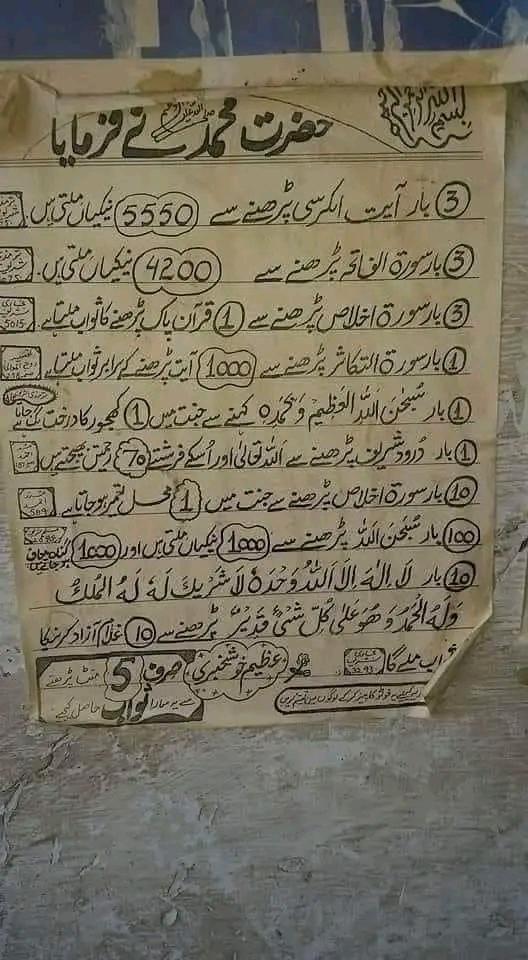 بسم الله الرحمن الرحيم
حضرت محمد صلی اللہ علیہ وسلم نے فرمایا
3 بار آیت الکرسی پڑھنے سے 5550 نیکیاں ملتی ہیں۔
3 بار سورۃ الفاتحہ پڑھنے سے 4200 نیکیاں ملتی ہیں۔
3 بار سورۃ اخلاص پڑھنے سے 1 قرآن پاک پڑھنے کا ثواب ملتا ہے۔ بخاری شریف 5015
1 بار سورۃ التکاثر پڑھنے سے 1000 آیت پڑھنے کے برابر ثواب ملتا ہے
1 بار سُبْحٰنَ اللہِ العَظِیْمِ وَبِحَمْدِہٖ کہنے سے جنت میں 1 کھجور کا درخت لگ جاتا ہے
1 بار درود شریف پڑھنے سے اللہ تعالیٰ اور اسکے فرشتے 70 رحمتیں بھیجتے ہیں
10 بار سورۃ اخلاص پڑھنے سے جنت میں 1 محل تعمیر ہو جاتا ہے
100 بار سُبْحٰنَ اللہ پڑھنے سے 1000 نیکیاں ملتی ہیں اور 1000 گناہ معاف ہو جاتے ہیں
10 بار لَا اِلٰہَ اِلَّا اللہُ وَحْدَہٗ لَا شَرِیْکَ لَہٗ لَہُ الْمُلْکُ
وَلَہُ الْحَمْدُ وَھُوَ عَلٰی کُلِّ شَیْءٍ قَدِیْرٌ پڑھنے سے 10 غلام آزاد کرنیکا
ثواب ملے گا بخاری شریف
عظیم خوشخبری صرف 5 منٹ پڑھنے
سے یہ سارا ثواب حاصل کیجیے